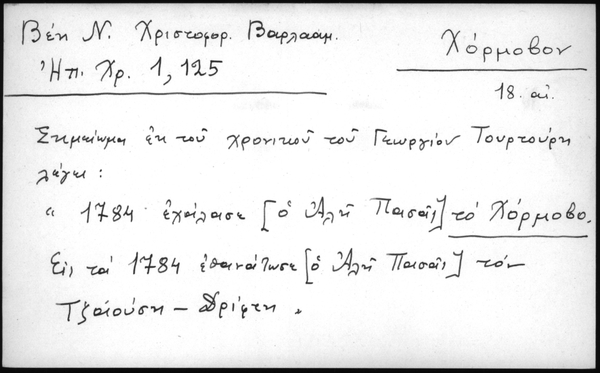 Βέη Ν. Χριστοφορ. Βαρλαάμ.
Ἠπ. Χρ. 1, 125
Χόρμοβον
18. αἰ.
Σημείωμα ἐκ τοῦ χρονικοῦ τοῦ Γεωργίου Τουρτούρη
λέγει :
“ 1784 ἐχάλασε [ὁ Ἀλῆ Πασᾶς] τὸ Χόρμοβο.
Εἰς τὰ 1784 ἐθανάτωσε [ὁ Ἀλῆ Πασᾶς] τὸν
Τζαούση –